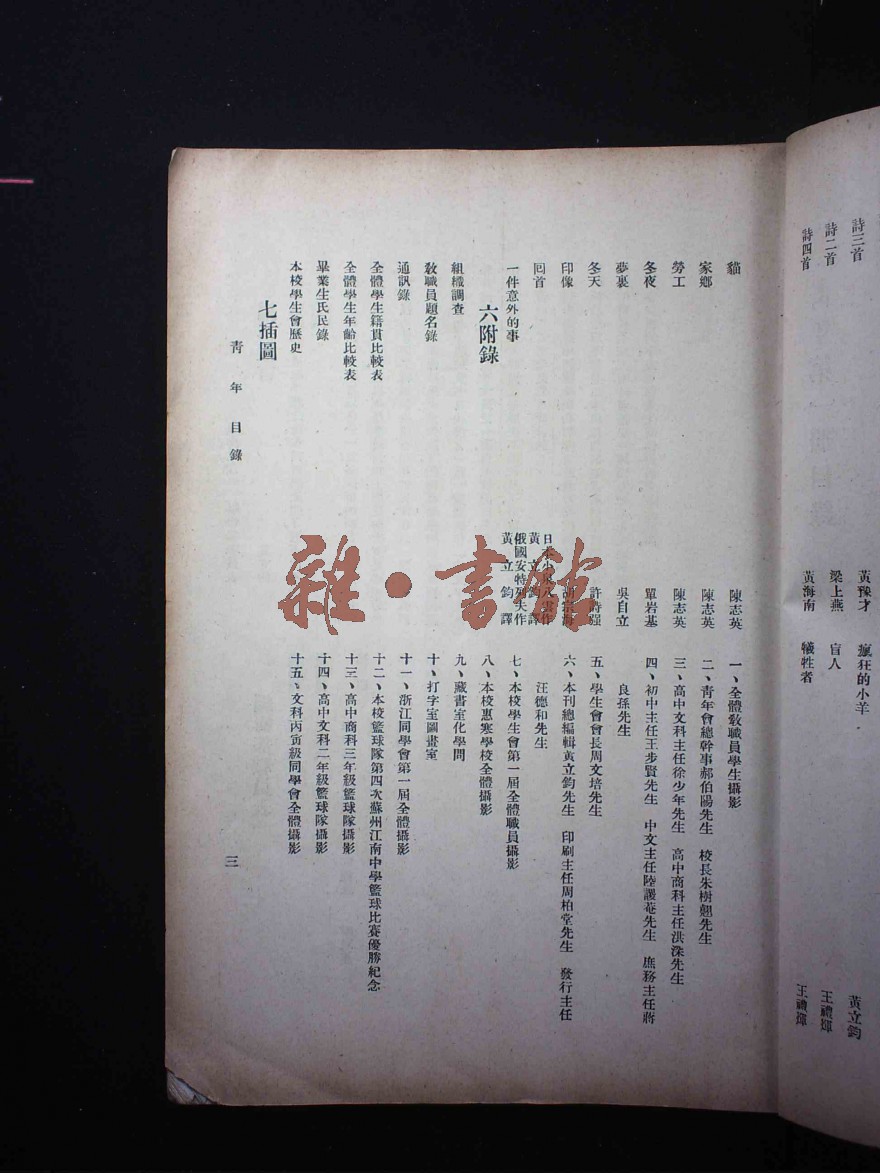 詩三首 黃豫才 瘋狂的小羊 黃立鈞
詩二首 梁上燕 盲人 王禮煇
詩四首 黃海南 犧牲者 王禮煇
貓 陳志英
家鄉 陳志英
勞工 陳志英
冬夜 單岩基
夢裏 吳自立
冬天 許詩强
印像
囘首 日本小泉八雲作 黃立鈞譯
一件意外的事 俄國安特列夫作 黃立鈞譯
六附錄
組織調查
敎職員題名錄
通訊錄
全體學生籍貫比較表
全體學生年齡比較表
畢業生氏民錄
本校學生會歷史
七插圖
一、全體敎職員學生攝影
二、靑年會總幹事郝伯陽先生 校長朱樹翹先生
三、高中文科主任徐少年先生 高中商科主任洪深先生
四、初中主任王步賢先生 中文主任陸護菴先生 庶務主任蔣
良孫先生
五、學生會會長周文培先生
六、本刊總編輯黃立鈞先生 印刷主任周柏堂先生 發行主任
汪德和先生
七、本校學生會第一屆全體職員攝影
八、本校惠寒學校全體攝影
九、藏書室化學問
十、打字室圖畫室
十一、浙江同學會第一屆全體攝影
十二、本校籃球隊第四次蘇州江南中學籃球比賽優勝紀念
十三、高中商科三年級籃球隊攝影
十四、高中文科二年級籃球隊攝影
十五、文科丙寅級同學會全體攝影
靑年目錄
三
雜·書館